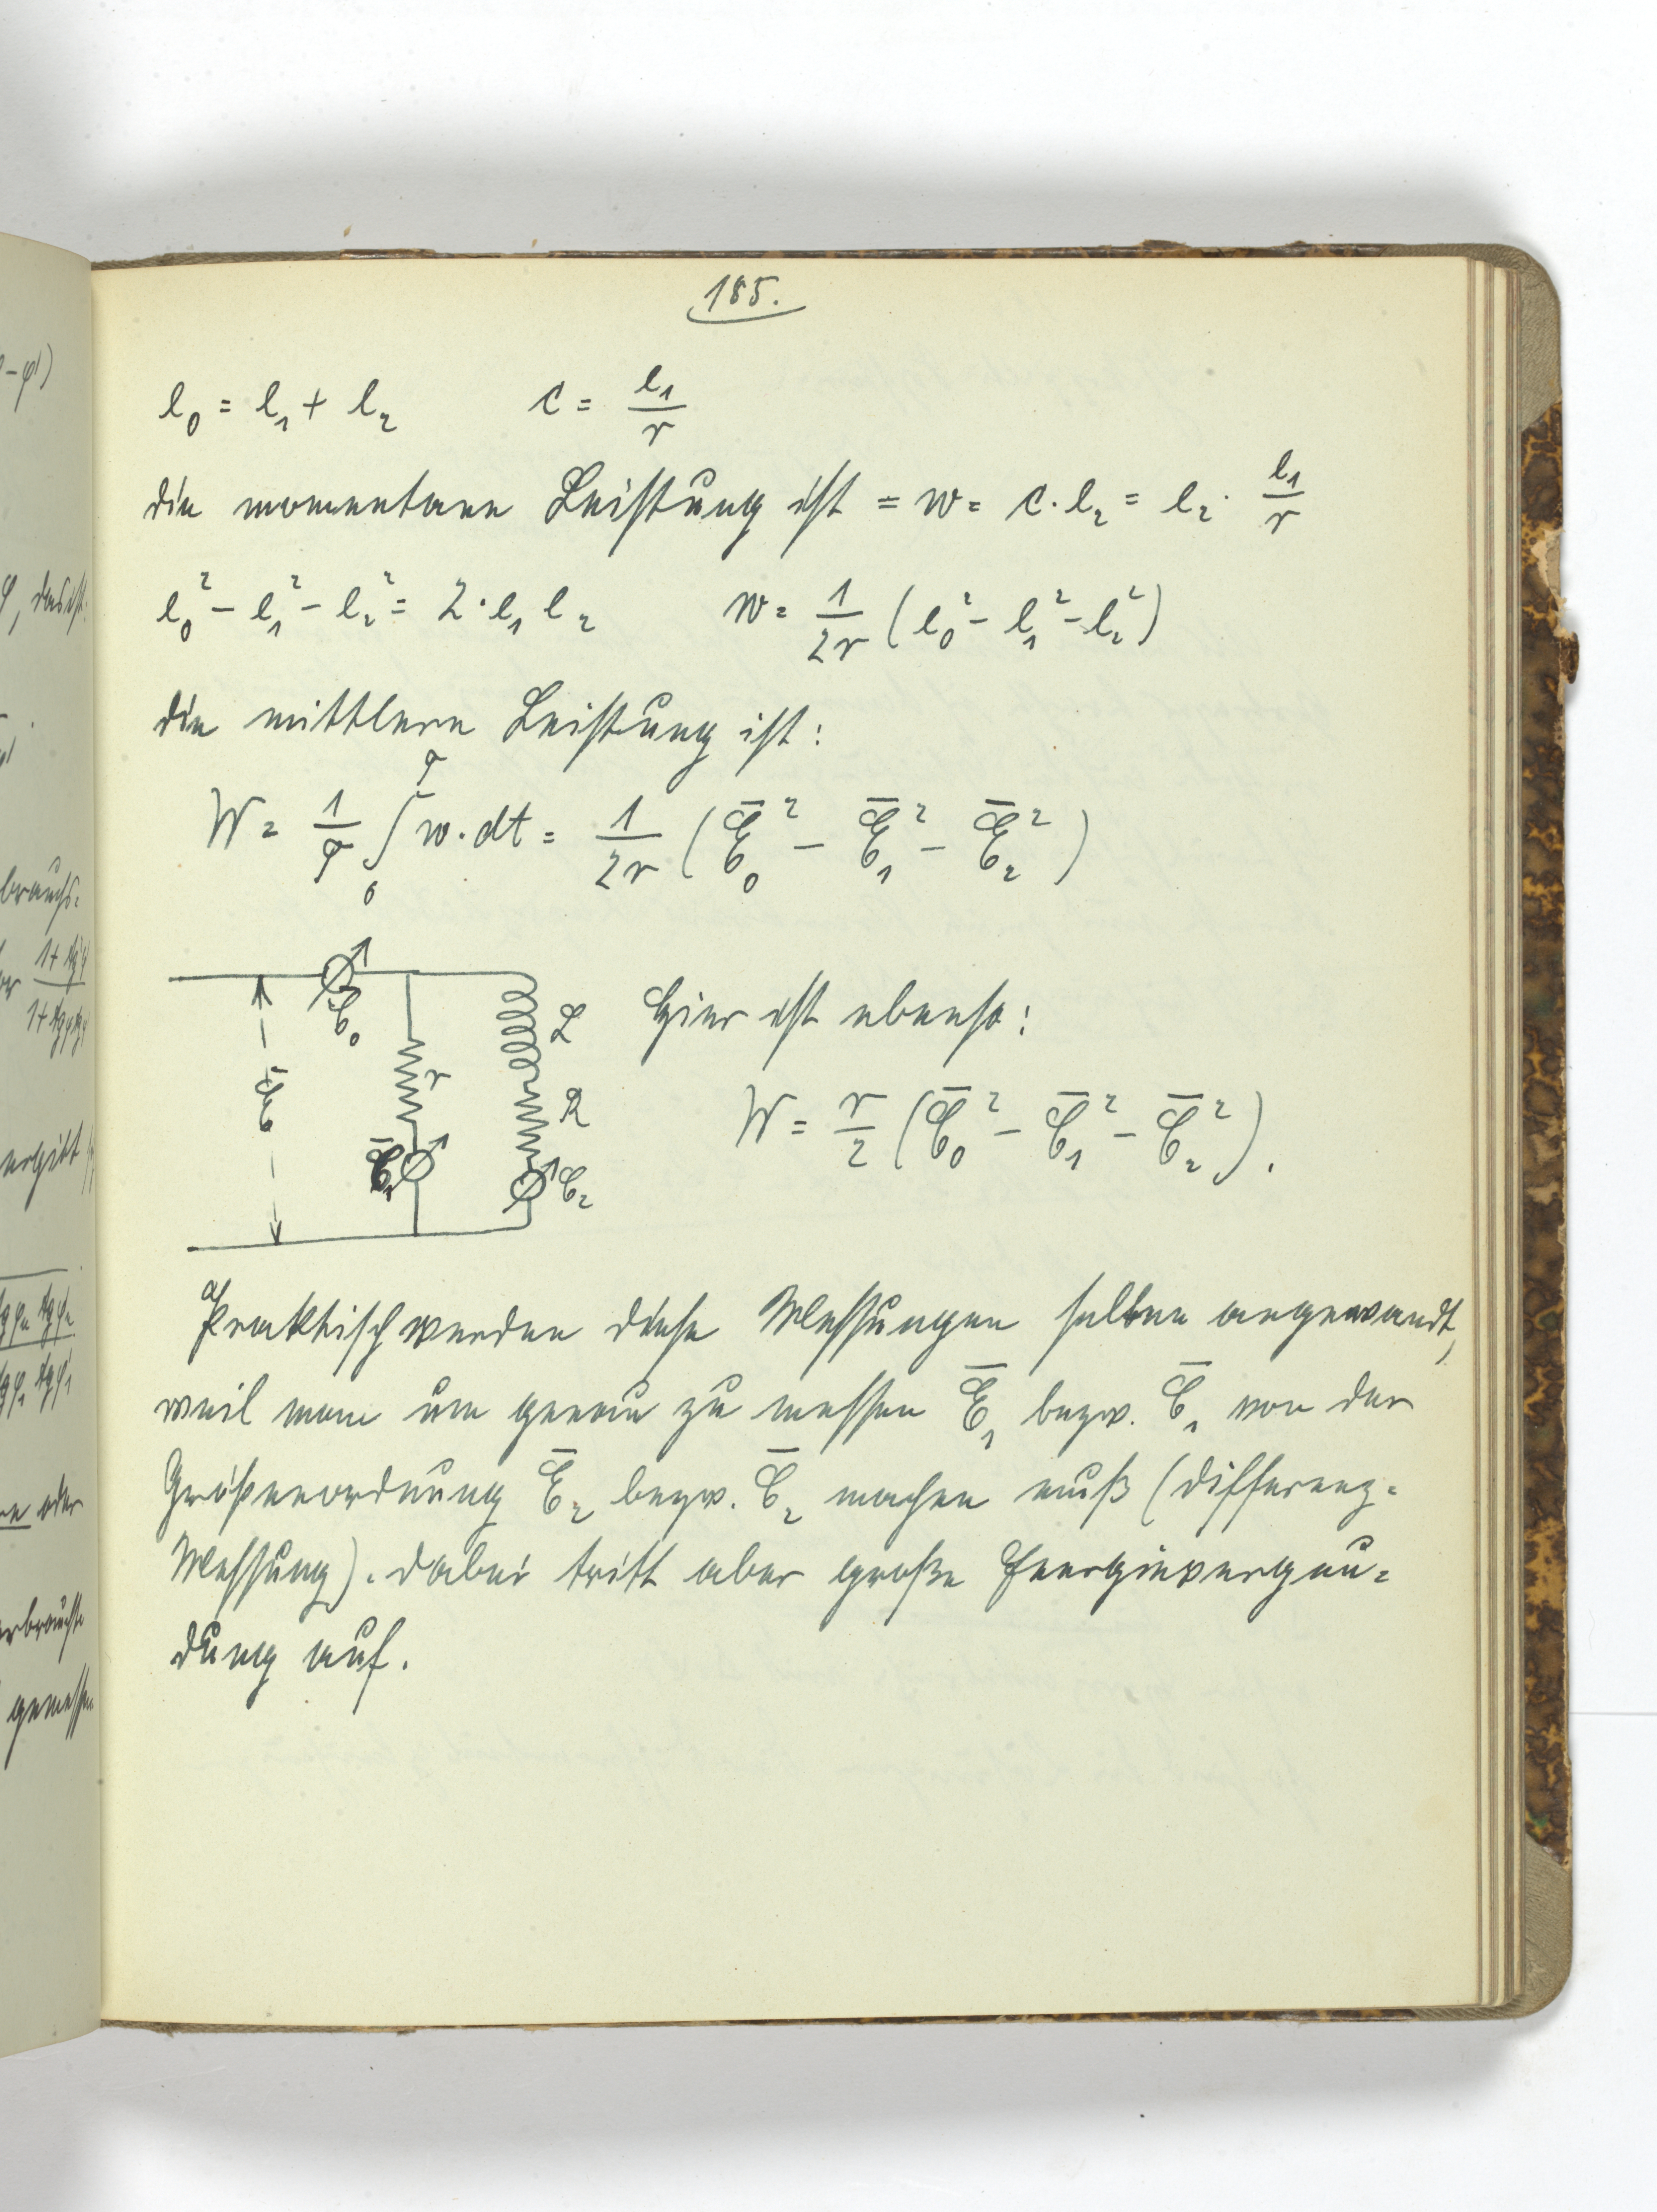 185.
e₀ = e₁ + e₂ c = e₁/r
die momentane Leistung ist = w = c · e₂ = e₂ · e₁/r
e₀² − e₁² − e₂² = 2 · e₁ e₂ w = 1/2r (e₀² − e₁² − e₂²)
die mittlere Leistung ist:
W = 1/T ∫₀ᵀ w · dt = 1/2r (Ē₀² − Ē₁² − Ē₂²)
C̄₀
L
Hier ist ebenso:
Ē
r
R
W = r/2 (C̄₀² − C̄₁² − C̄₂²).
C̄₁
C̄₂
Praktisch werden diese Messungen selten angewandt,
weil man um genau zu messen Ē₁ bezw. C̄₁ von der
Größenordnung Ē₂ bezw. C̄₂ machen muß (Differenz=
Messung). Dabei tritt aber große Energievergeu=
dung auf.
−φ')
φ, das ist:
brauchs=
ergibt
oder
erbrauchte
gemessen